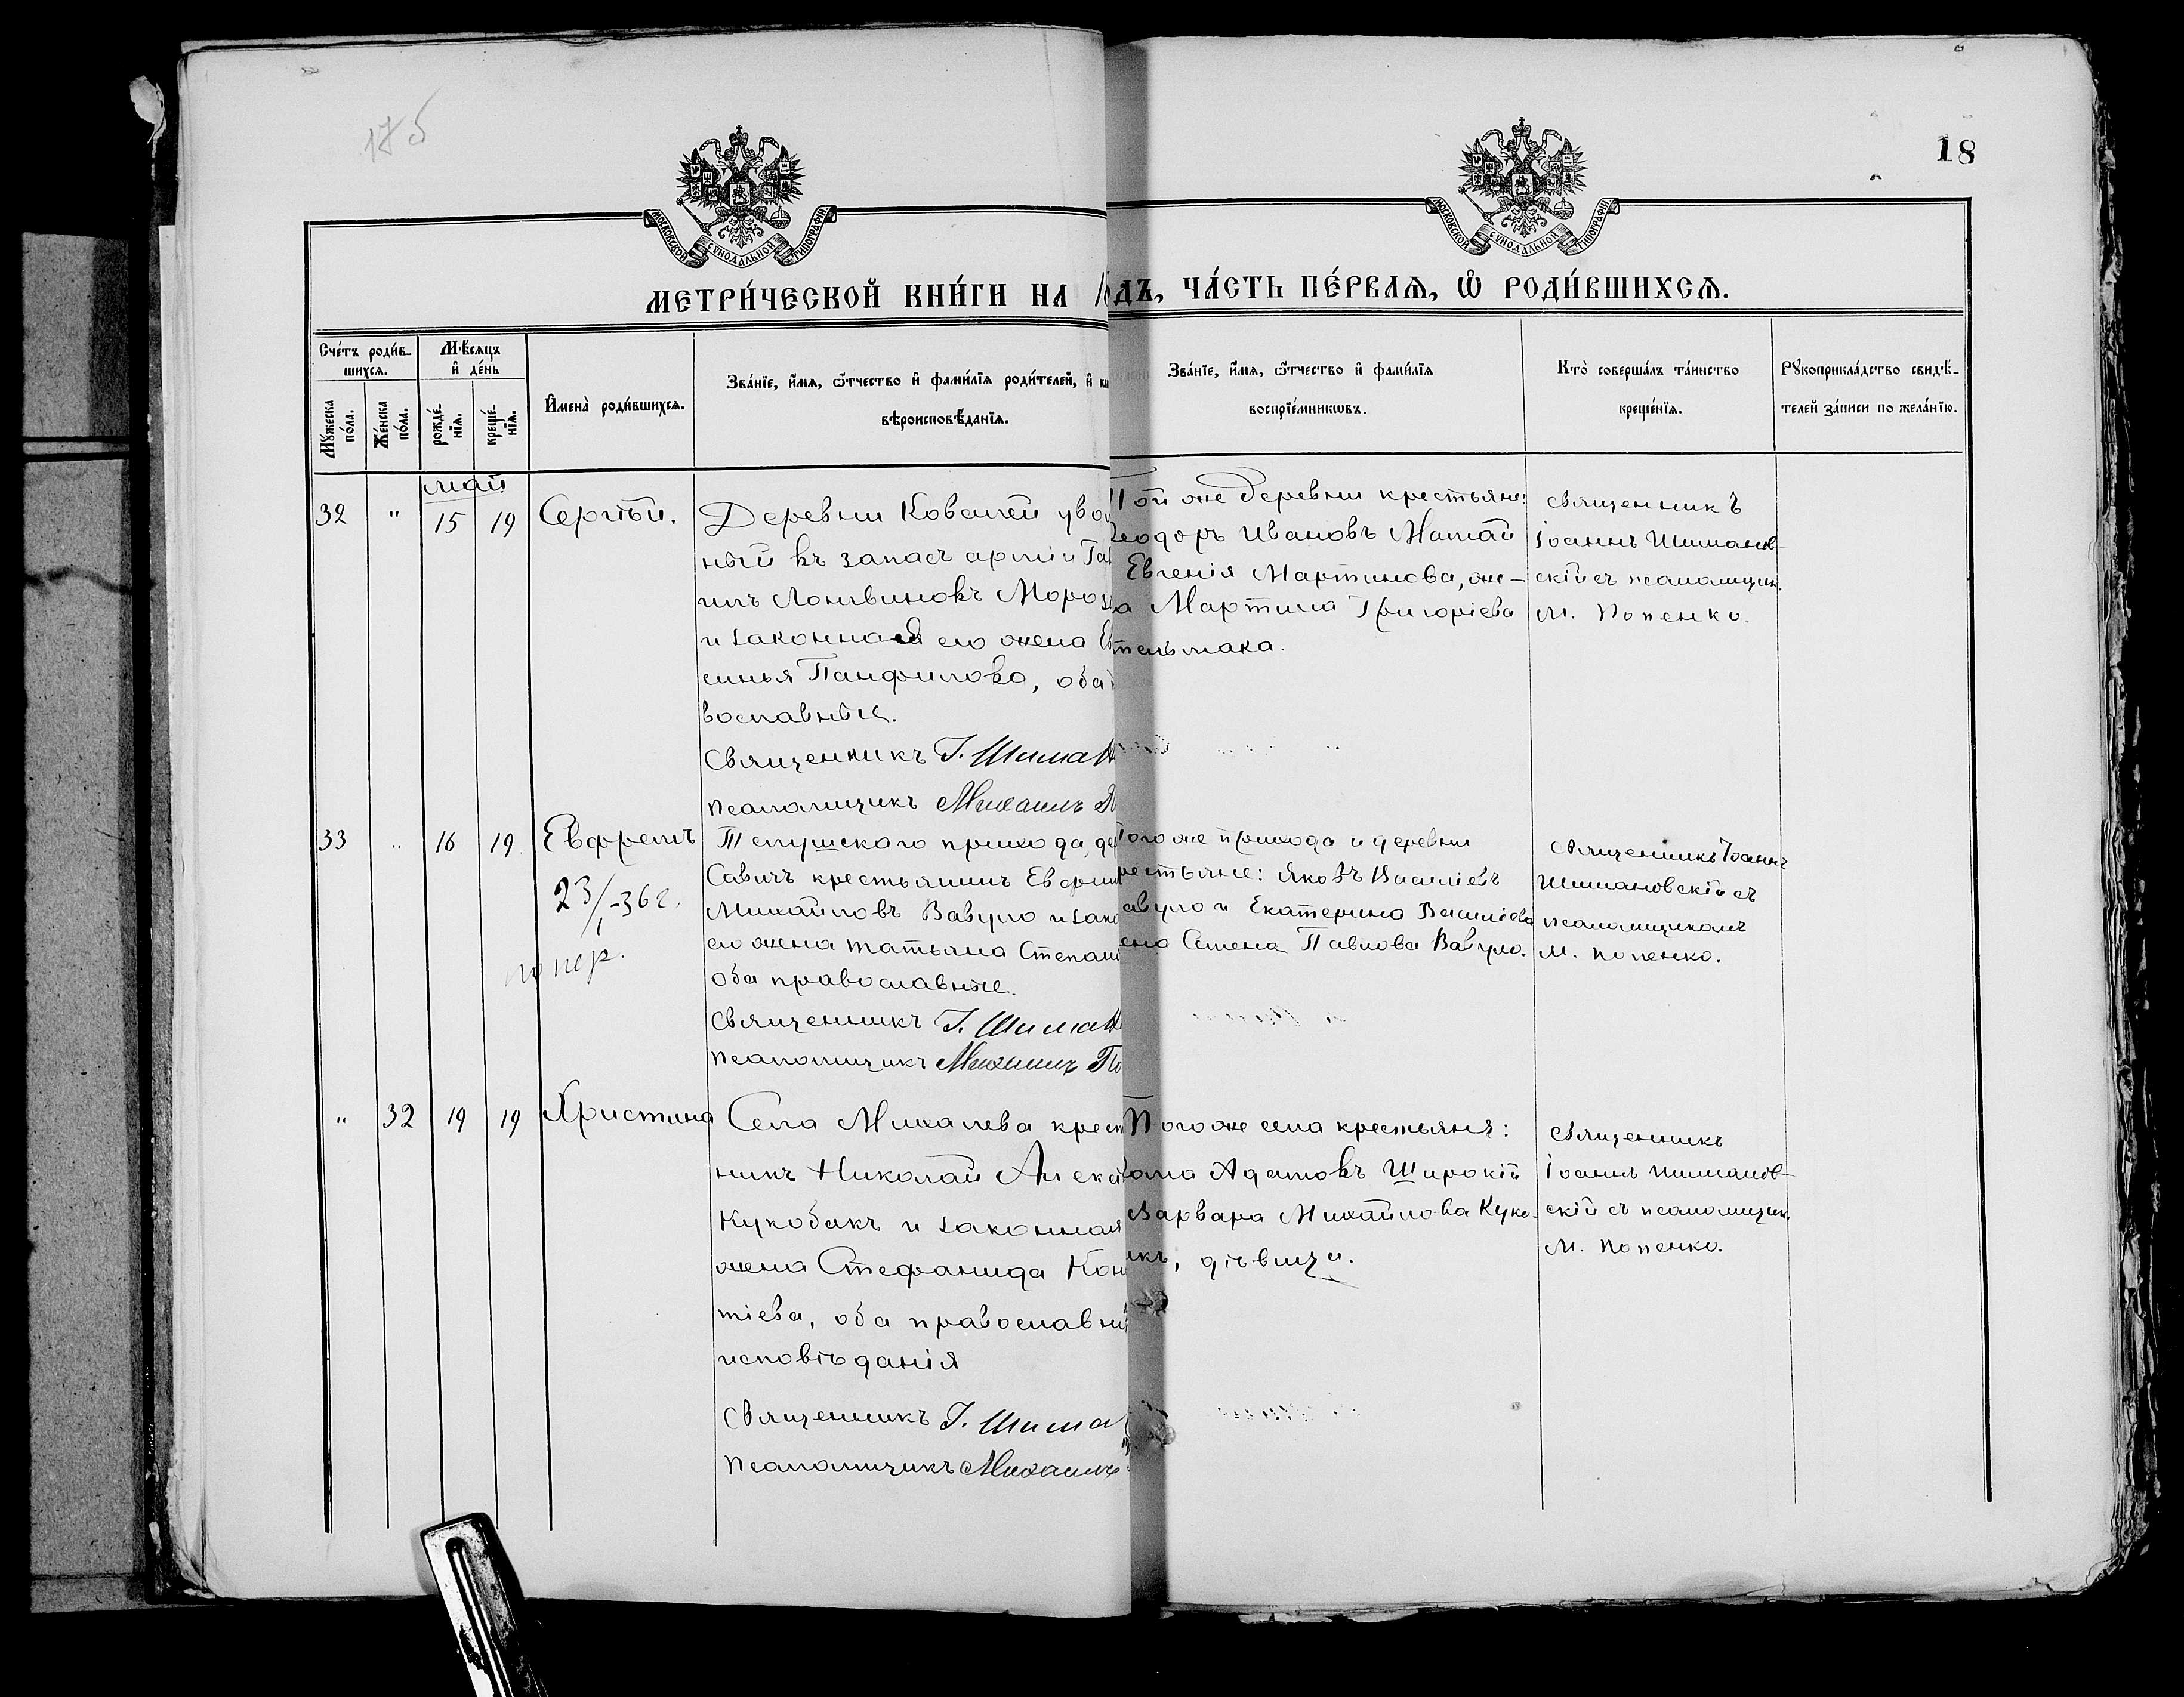 175
18
МОСКОВСКОЙ СѴНОДАЛЬНОЙ ТИПОГРАФІИ
МОСКОВСКОЙ СѴНОДАЛЬНОЙ ТИПОГРАФІИ
МЕТРИ́ЧЕСКОЙ КНИ́ГИ НА
ДЪ, ЧА́СТЬ ПЕ́РВАѦ, Ѡ҆ РОДИ́ВШИХСѦ.
Сче́тъ роди́в-
шихсѧ.
Мꙋ́жеска по́ла.
Же́нска по́ла.
Мѣ́сѧцъ
и҆ де́нь
рожде́-
нїѧ.
креще́-
нїѧ.
И҆мена̀ роди́вшихсѧ.
Зва́нїе, и҆́мѧ, ѻ҆́тчество и҆ фами́лїѧ роди́телей, и҆
вѣроисповѣ́данїѧ.
Зва́нїе, и҆́мѧ, ѻ҆́тчество и҆ фами́лїѧ
воспрїе́мникѡвъ.
Кто̀ соверша́лъ та́инство
креще́нїѧ.
Рꙋкоприкла́дство свидѣ́-
телей за́писи по жела́нїю.
май
32 " 15 19 Сергѣй.
Деревни Ковалей уво
ный въ запасъ арміи Гав
илъ Логвиновъ Мороз
и законная его жена Ев
синья Панфилова, оба
вославные.
Священникъ І. Шиман
псаломщикъ Михаилъ По
Той же деревни крестьяне:
Ѳеодоръ Ивановъ Мамай
Евгенія Мартинова, же-
а Мартина Григоріева
тельмака.
священникъ
Іоаннъ Шиманов-
скій съ псаломщик.
М. Попенко.
33 " 16 19 Евфремъ
23/1-36 г.
Тепушскаго прихода, де
Савичъ крестьянинъ
Михайловъ Вавуло и зако
его жена Татьяна Степан
оба православные.
Священникъ І. Шиман
псаломщикъ Михаилъ По
Того же прихода и деревни
рестьяне: Яковъ Василіевъ
авуло и Екатерина Василіева
ена Семена Павлова Вавуло.
Священникъ Іоаннъ
Шимановскій съ
псаломщикомъ
М. Попенко.
" 32 19 19 Христина
Села Михалева крест
нинъ Николай Алекс
Кукобакъ и законная
жена Стефанида Кон
тіева, оба православн
исповѣданія
Священникъ І. Шима
псаломщикъ Михаилъ
Того же села крестьяне:
ома Адамовъ Широкій
Варвара Михайлова Куко-
акъ, дѣвица.
священникъ
Іоаннъ Шиманов-
скій съ псаломщик.
М. Попенко.